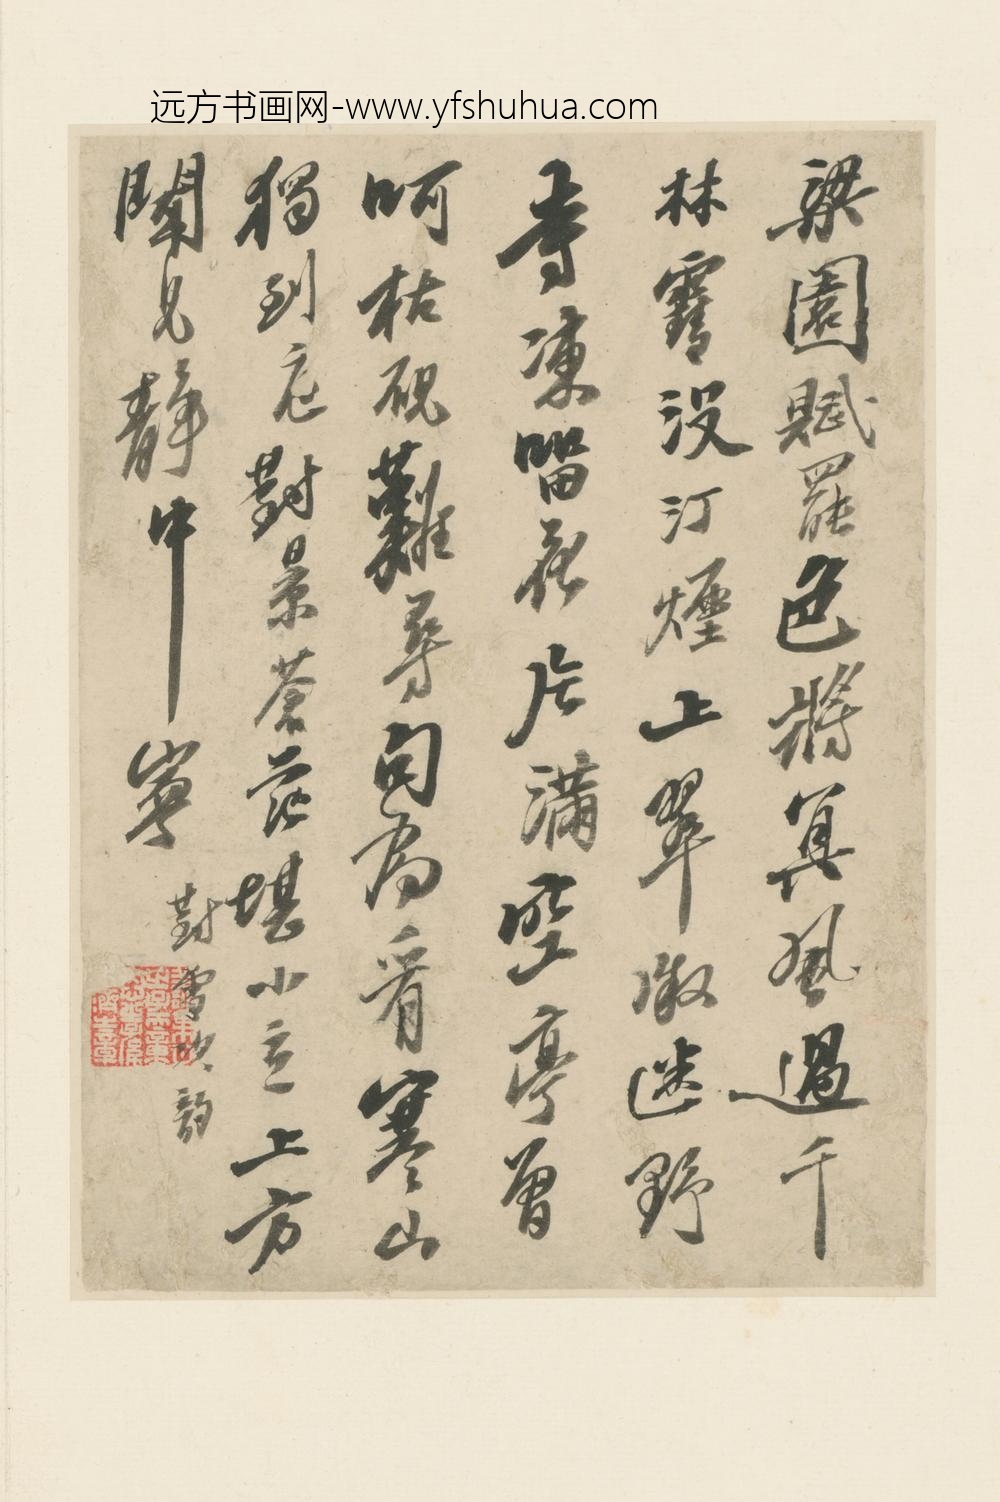 远方书画网-www.yfshuhua.com
梁園賦罷色將冥風過千
林霽没汀煙上翠微迷野
寺凍留花片滿空亭曾
呵枯硯難尋句為看寒山
獨到庭對景蒼茫堪小立上方
聞見靜中寧
對雪次韻